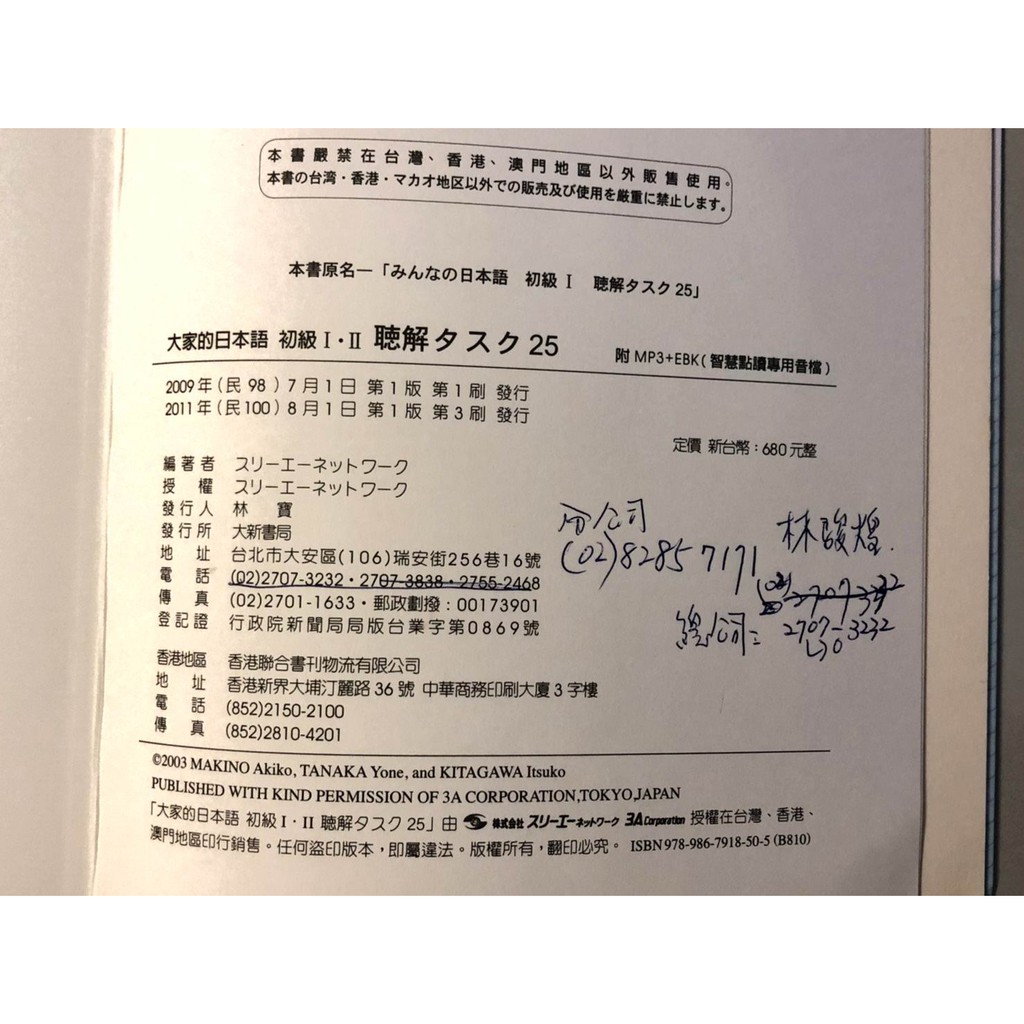 本書嚴禁在台灣、香港、澳門地區以外販售使用。
本書の台湾・香港・マカオ地区以外での販売及び使用を厳重に禁止します。
本書原名—「みんなの日本語 初級 I 聴解タスク25」
大家的日本語 初級 I・II 聴解タスク25
附 MP3+EBK(智慧點讀專用音檔)
2009年(民98)7月1日 第1版 第1刷 發行
2011年(民100)8月1日 第1版 第3刷 發行
定價 新台幣：680元整
編著者 スリーエーネットワーク
授權 スリーエーネットワーク
發行人 林寶
發行所 大新書局
地址 台北市大安區(106)瑞安街256巷16號
電話 (02)2707-3232・2707-3838・2755-2468
傳真 (02)2701-1633・郵政劃撥：00173901
登記證 行政院新聞局局版台業字第0869號
分公司
(02)8285 7171
林駿煌.
總公司：
2707-3232
香港地區 香港聯合書刊物流有限公司
地址 香港新界大埔汀麗路36號 中華商務印刷大廈3字樓
電話 (852)2150-2100
傳真 (852)2810-4201
©2003 MAKINO Akiko, TANAKA Yone, and KITAGAWA Itsuko
PUBLISHED WITH KIND PERMISSION OF 3A CORPORATION,TOKYO,JAPAN
「大家的日本語 初級 I・II 聴解タスク25」由 株式会社 スリーエーネットワーク 3A Corporation 授權在台灣、香港、
澳門地區印行銷售。任何盜印版本，即屬違法。版權所有，翻印必究。 ISBN 978-986-7918-50-5 (B810)